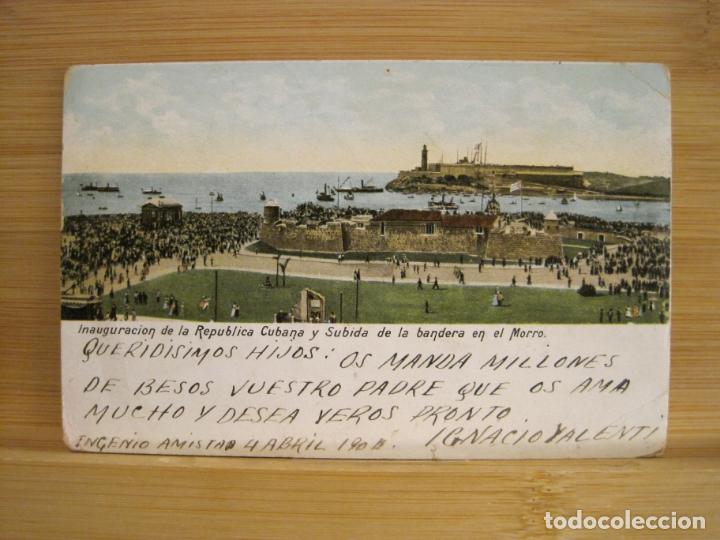 Inauguracion de la Republica Cubana y Subida de la bandera en el Morro.
QUERIDISIMOS HIJOS: OS MANDA MILLONES
DE BESOS VUESTRO PADRE QUE OS AMA
MUCHO Y DESEA VEROS PRONTO
INGENIO AMISTAD 4 ABRIL
IGNACIO VALENTI
todocoleccion.net